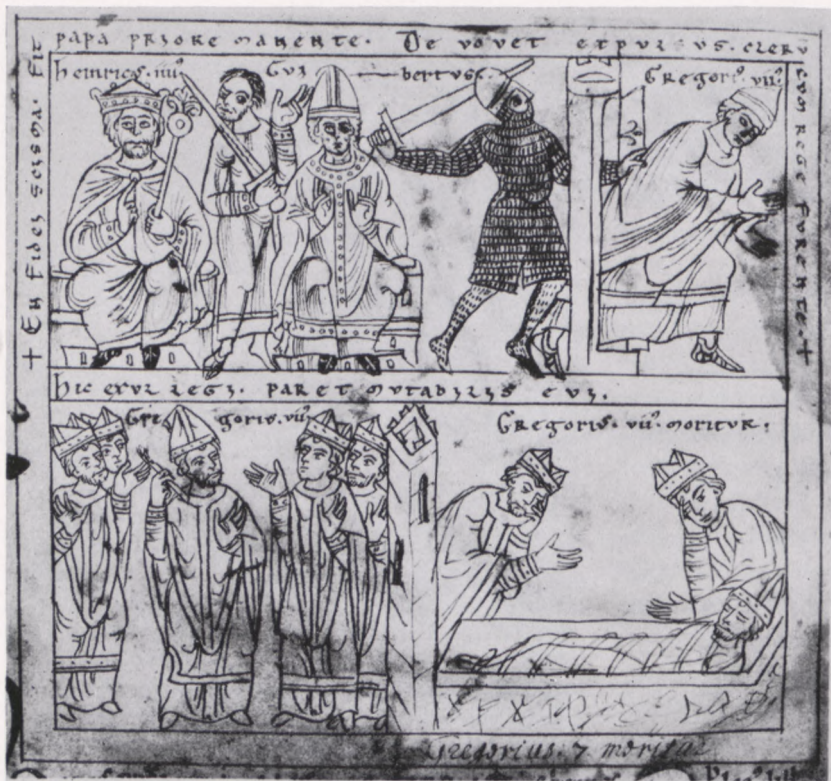 + En fidei scisma. fit
papa priore manente. De vovet expulsus. cleru
cum rege furente. +
heinricꝰ. iiii.
Gui bertus.
Gregoriꝰ. vii.
hic exul regi. paret mutabilis evi.
Gre goriꝰ. vii.
Gregoriꝰ. vii. moritur.
Gregorius. 7 moritur